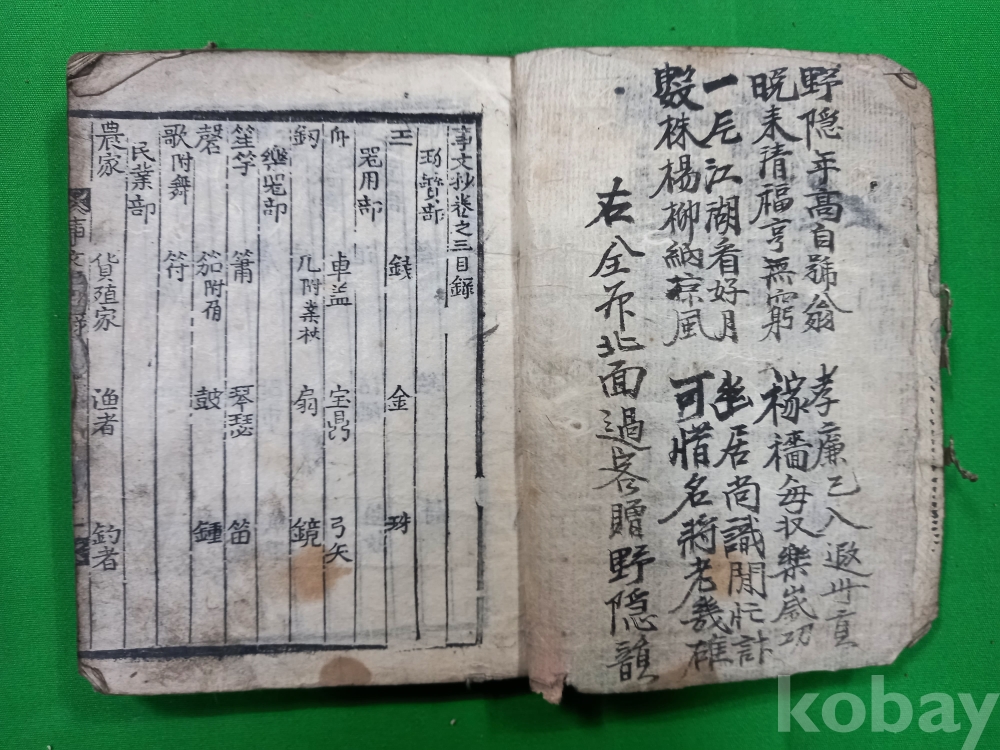 野隐年高自號翁 孝廉已八遐世重
晩来清福亨無窮 稼穡每収樂歲功
一尺江湖看好月 坐居尚識閒忙計
數株楊柳納凉風 可惜名將老幾雄
右全 北面過客贈野隐韻
事文抄卷之三目錄
珎寶部
玉 錢 金 珠
器用部
舟 車盖 宝鼎 弓矢
釼 几附案杖 扇 鏡
樂器部
笙竽 簫 琴瑟 笛
磬 笳附角 鼓 鍾
歌附舞 符
民業部
農家 貨殖家 渔者 釣者
kobay